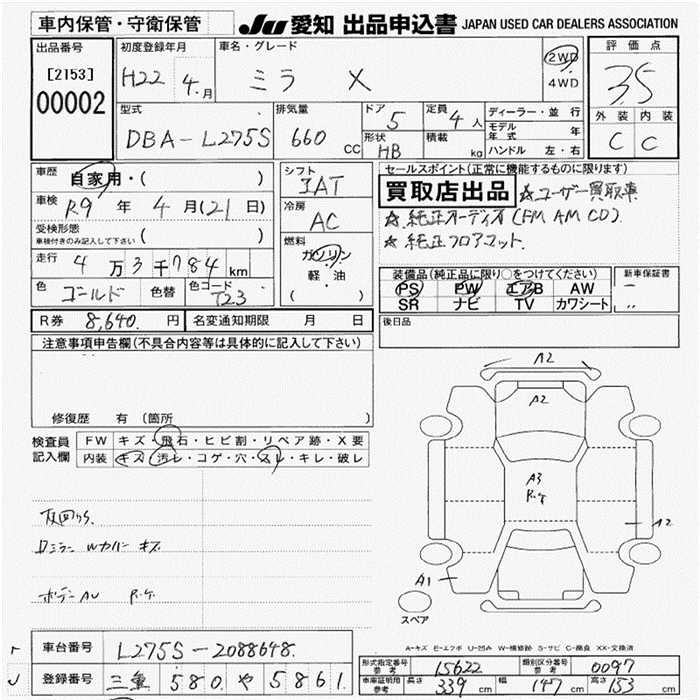 車内保管・守衛保管 JU 愛知 出品申込書 JAPAN USED CAR DEALERS ASSOCIATION
出品番号 初度登録年月 車名・グレード 評価点
[2153] H22 4.月 ミラ X 2WD 3.5
00002 4WD
外装 内装
型式 排気量 ドア 5 定員 4人 ディーラー・並行
DBA-L275S 660 CC 形状 HB 積載 kg モデル年式 年 C C
ハンドル 左・右
車歴 自家用・( ) シフト IAT セールスポイント(正常に機能するものに限ります)
車検 R9 年 4 月(21日) 冷房 AC 買取店出品 ☆ユーザー買取車
受検形態 ( ) ☆純正オーディオ(FM AM CD)
車検付きのみ記入して下さい 燃料 ガソリン ☆純正フロアマット
走行 4万3千784km 軽・油 装備品(純正品に限り○をつけてください) 新車保証書
色 ゴールド 色替 色コード T23 ( ) PS PW エアB AW ー
SR ナビ TV カワシート
R券 8,640.円 名変通知期限 月 日 後日品
注意事項申告欄(不具合内容等は具体的に記入して下さい)
修復歴 有 (箇所
検査員 FW キズ・飛石・ヒビ割・リペア跡・X要
記入欄 内装 キズ・汚レ・コゲ・穴・スレ・キレ・破レ
A2
A2
A3
R.ケ
A2
A1
Dミラー Wカバー キズ
ボデー AU R.ケ
スペア
A-キズ E-エクボ U-凹み W-補修跡 S-サビ C-腐食 XX-交換済
車台番号 L275S-2088648.
登録番号 三重 580 や 5861
形式指定番号 参考 15622 類別区分番号 参考 0097
車庫証明用 参考 長さ 339 cm 幅 147 cm 高さ 153 cm